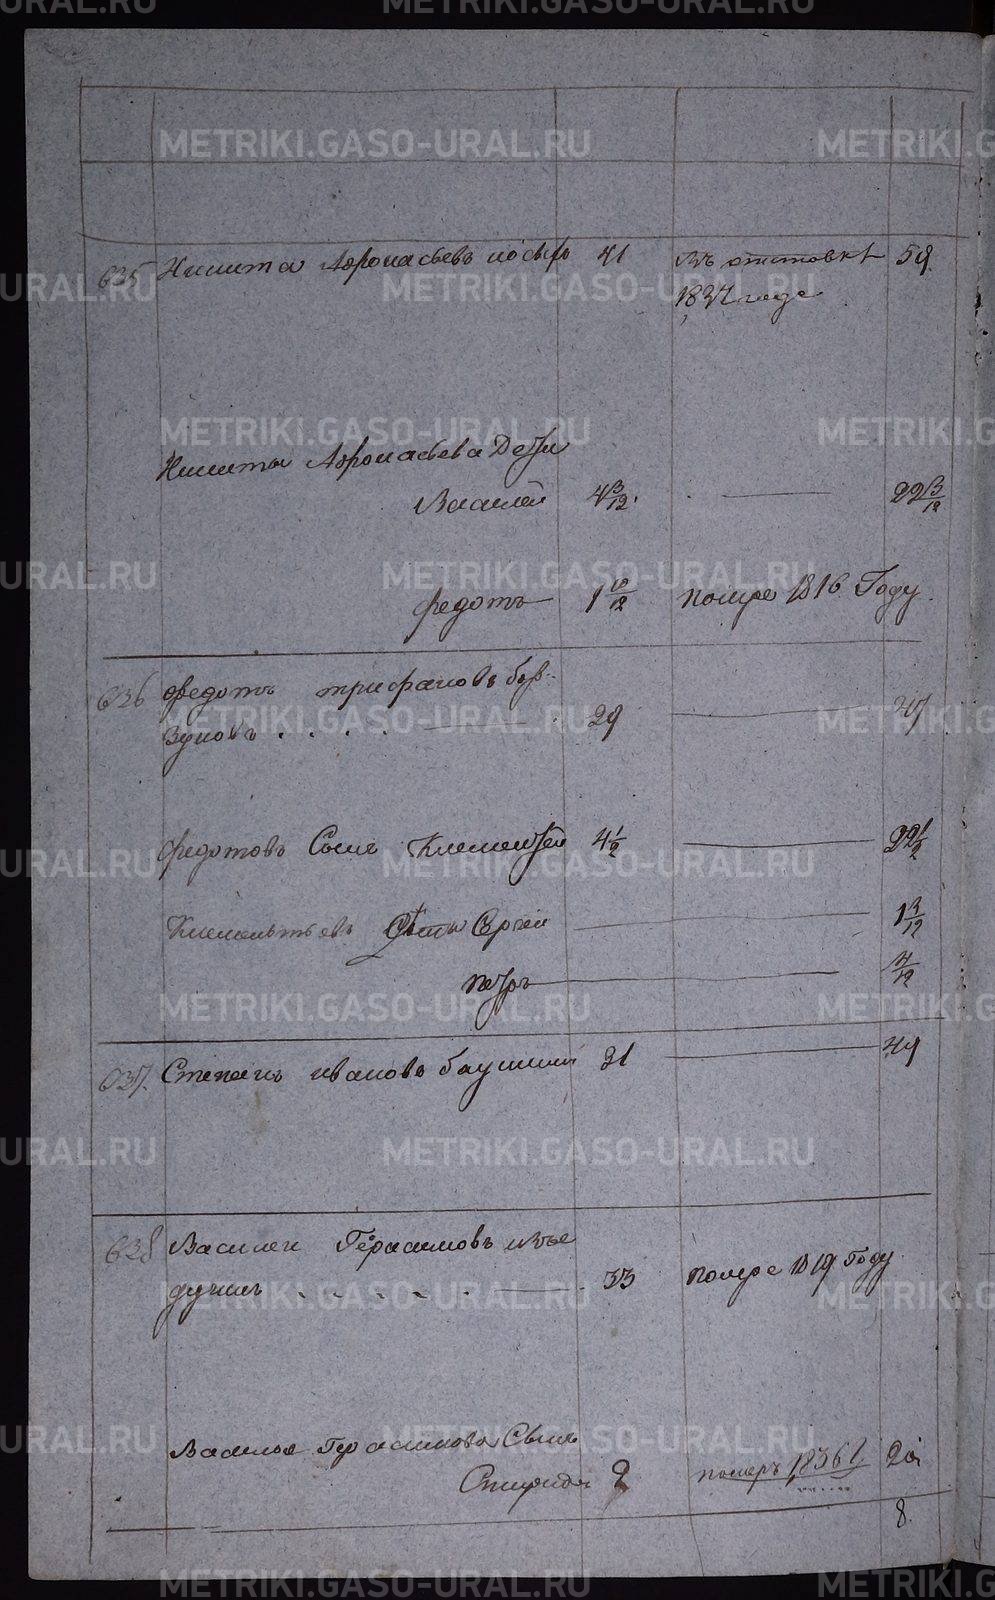 METRIKI.GASO-URAL.RU
635 Никита Афонасьевъ 41 въ отставке 59
1837 года
Никиты Афонасьева Дети
Василей 4 3/12 22 3/12
Федотъ 1 10/12 помре 1816 Году
636 Федотъ трифановъ
29 47
Федотовъ Сынъ Клементей 4 1/2 22 1/2
Клементьевъ Дети Сергей 1 3/12
Петръ
637 Степанъ ивановъ 31 49
638 Василей Герасимовъ
33 помре 1819 Году
Василья Герасимова Сынъ
Спиридон 2 померъ 1836 20
8.